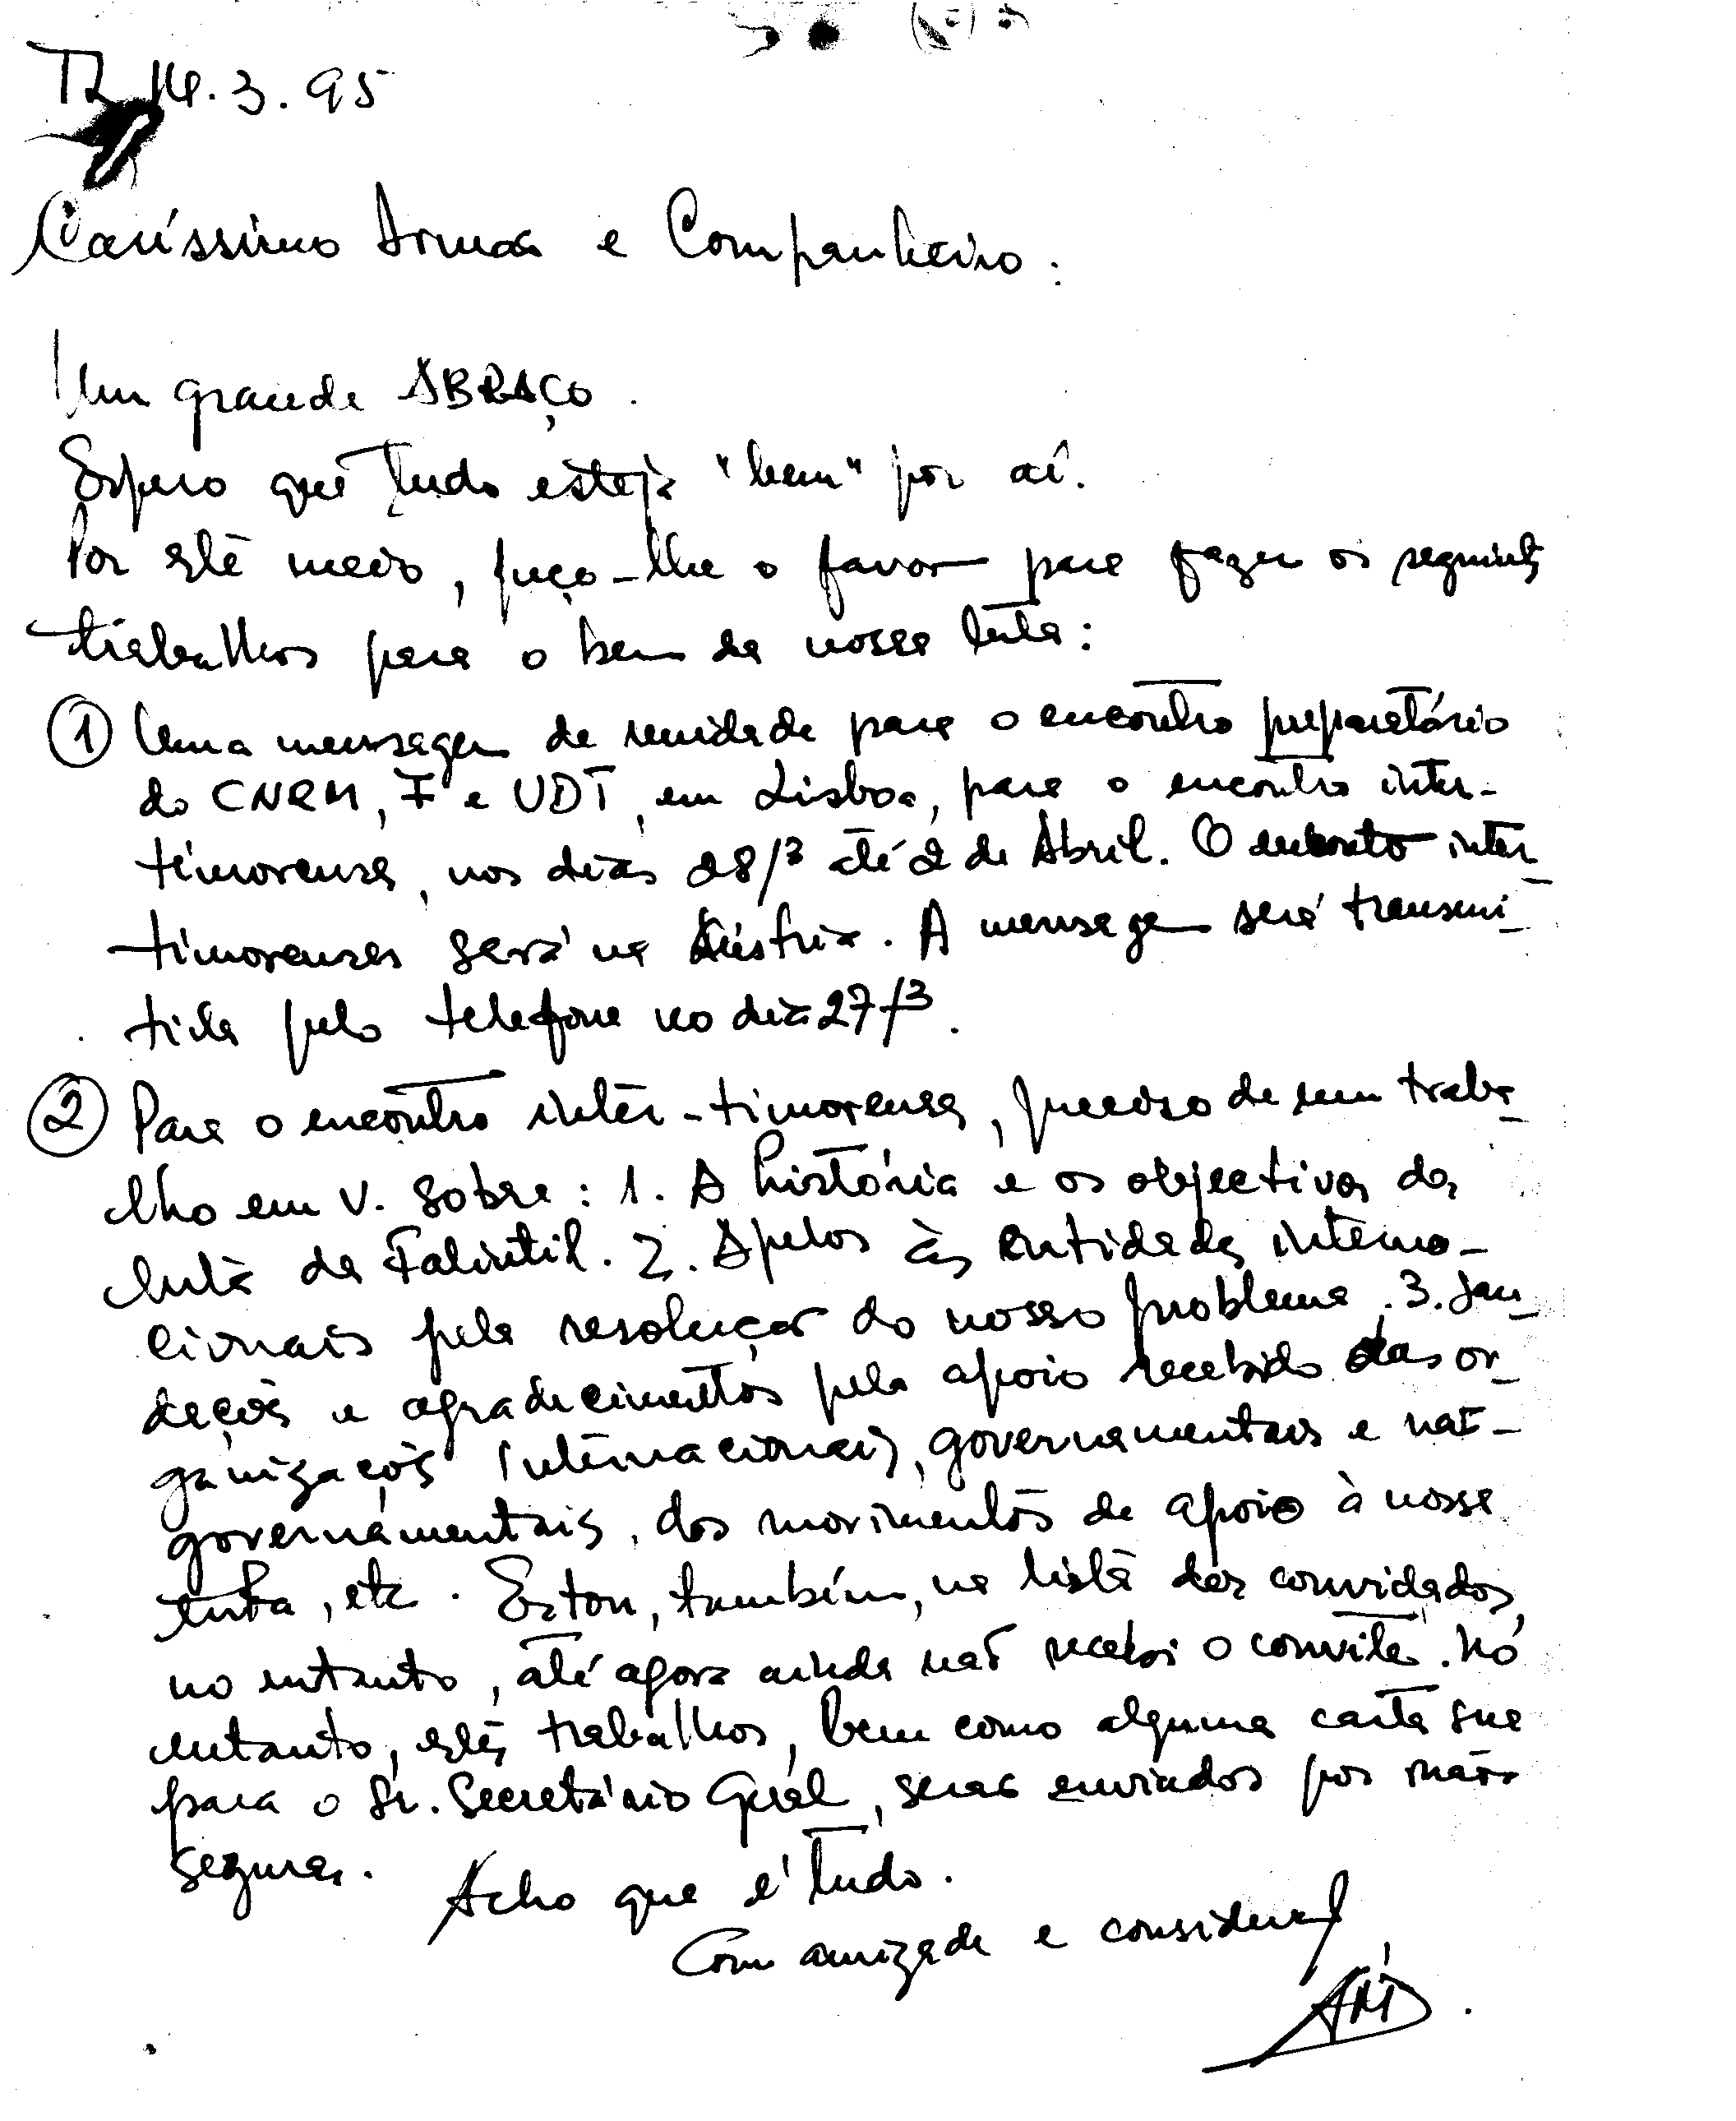 14.3.95
Caríssimo Irmão e Companheiro:
Um grande ABRAÇO.
Espero que tudo esteja "bem" por aí.
Por este meio, peço-lhe o favor para fazer os seguintes
trabalhos para o bem da nossa luta:
① Uma mensagem de unidade para o encontro preparatório
do CNRM, F e UDT, em Lisboa, para o encontro inter-
timorense, nos dias 28/3 até 2 de Abril. O encontro inter
timorenses será na Áustria. A mensagem será transmi-
tida pelo telefone no dia 27/3.
② Para o encontro inter-timorense, preciso de um traba-
lho em V. sobre: 1. A história e os objectivos da
luta da Falintil. 2. Apelos às entidades interna-
cionais pela resolução do nosso problema. 3. Sau-
dações e agradecimentos pelo apoio recebido das or-
ganizações internacionais, governamentais e não-
governamentais, dos movimentos de apoio à nossa
luta, etc. Estou, também, na lista dos convidados,
no entanto, até agora ainda não recebi o convite. No
entanto, estes trabalhos, bem como alguma carta sua
para o Sr. Secretário Geral, serão enviados por mãos
seguras.
Acho que é tudo.
Com amizade e consideração